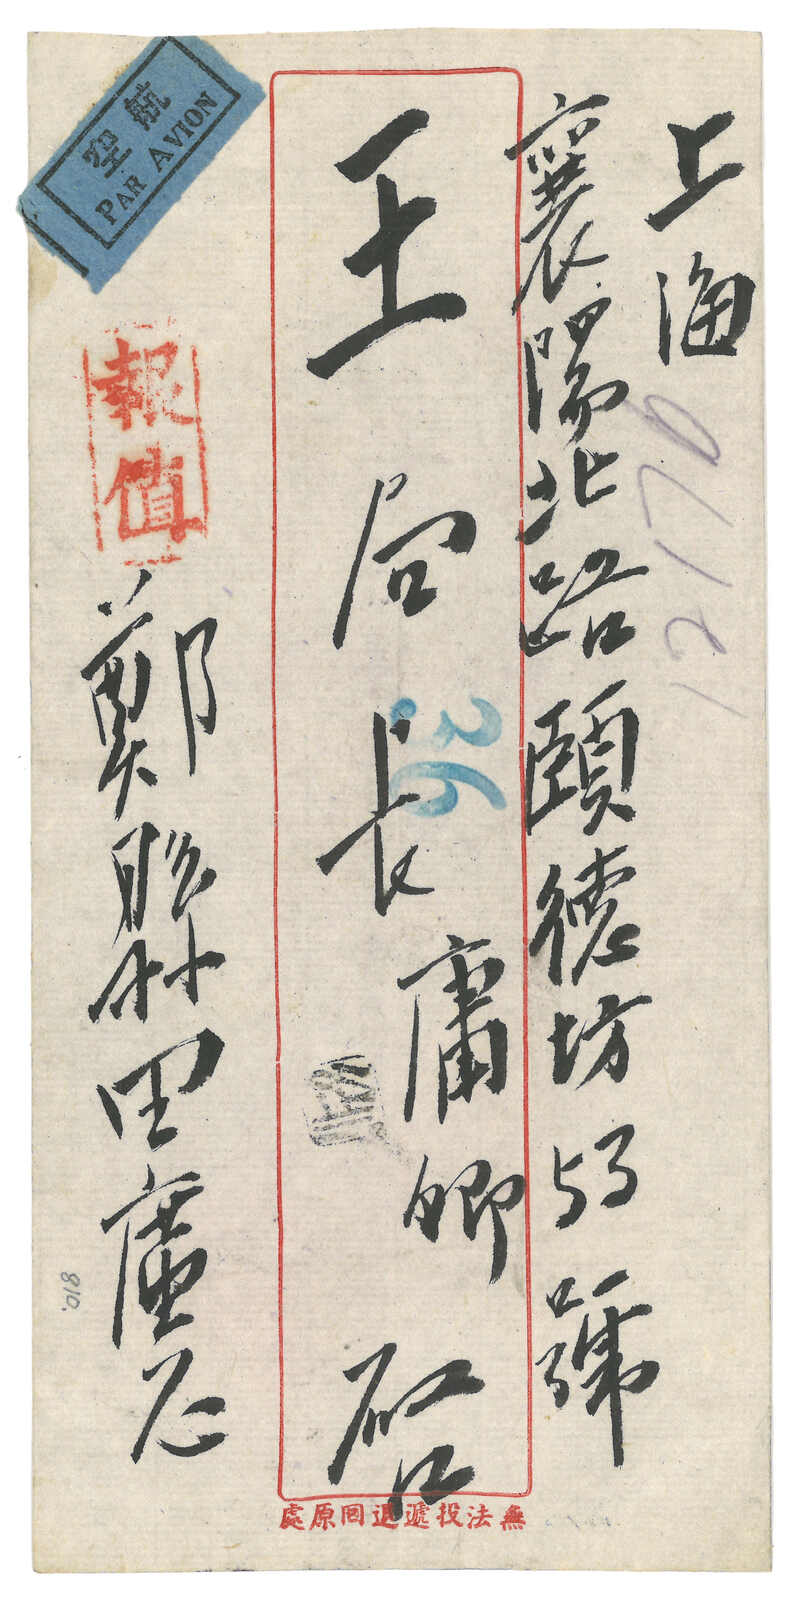 上海
襄陽北路頤德坊53號
王局長庸卿啓
鄭縣田廣忘
航空
PAR AVION
報值
36
無法投遞退回原處
810.